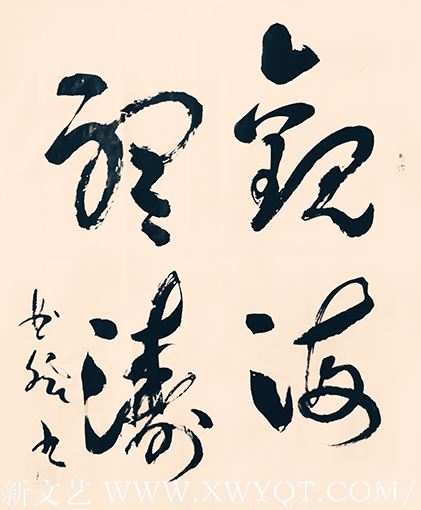 觀海
聽濤
新文艺 WWW.XWYQT.COM/